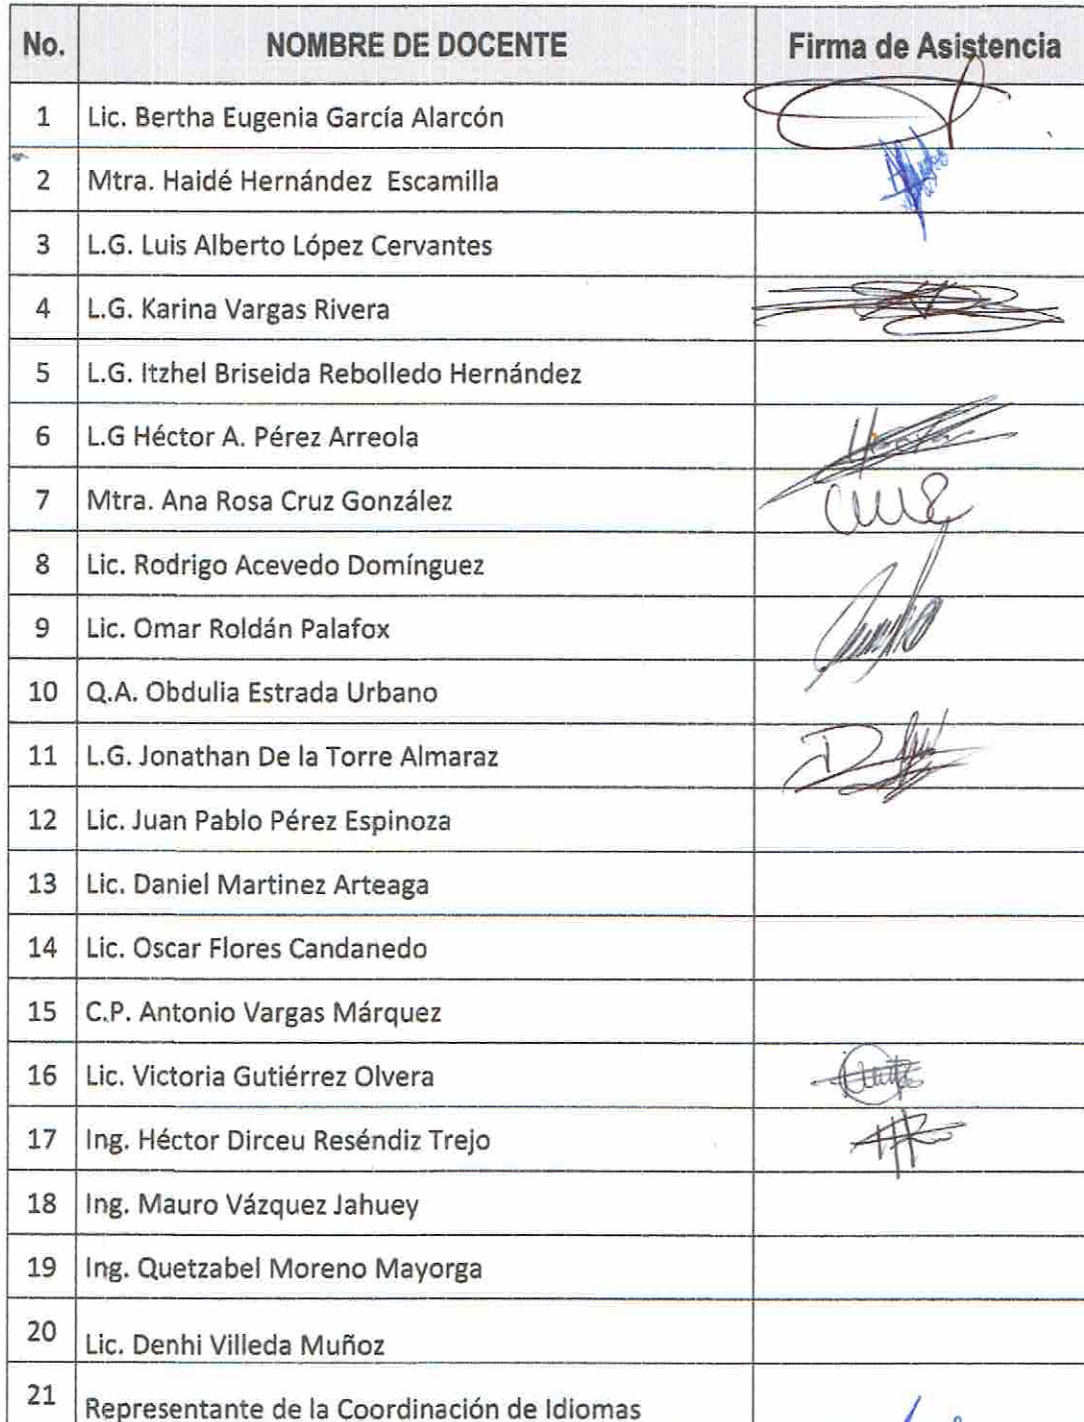 No. NOMBRE DE DOCENTE Firma de Asistencia
1 Lic. Bertha Eugenia García Alarcón
2 Mtra. Haidé Hernández Escamilla
3 L.G. Luis Alberto López Cervantes
4 L.G. Karina Vargas Rivera
5 L.G. Itzhel Briseida Rebolledo Hernández
6 L.G Héctor A. Pérez Arreola
7 Mtra. Ana Rosa Cruz González
8 Lic. Rodrigo Acevedo Domínguez
9 Lic. Omar Roldán Palafox
10 Q.A. Obdulia Estrada Urbano
11 L.G. Jonathan De la Torre Almaraz
12 Lic. Juan Pablo Pérez Espinoza
13 Lic. Daniel Martinez Arteaga
14 Lic. Oscar Flores Candanedo
15 C.P. Antonio Vargas Márquez
16 Lic. Victoria Gutiérrez Olvera
17 Ing. Héctor Dirceu Reséndiz Trejo
18 Ing. Mauro Vázquez Jahuey
19 Ing. Quetzabel Moreno Mayorga
20 Lic. Denhi Villeda Muñoz
21 Representante de la Coordinación de Idiomas